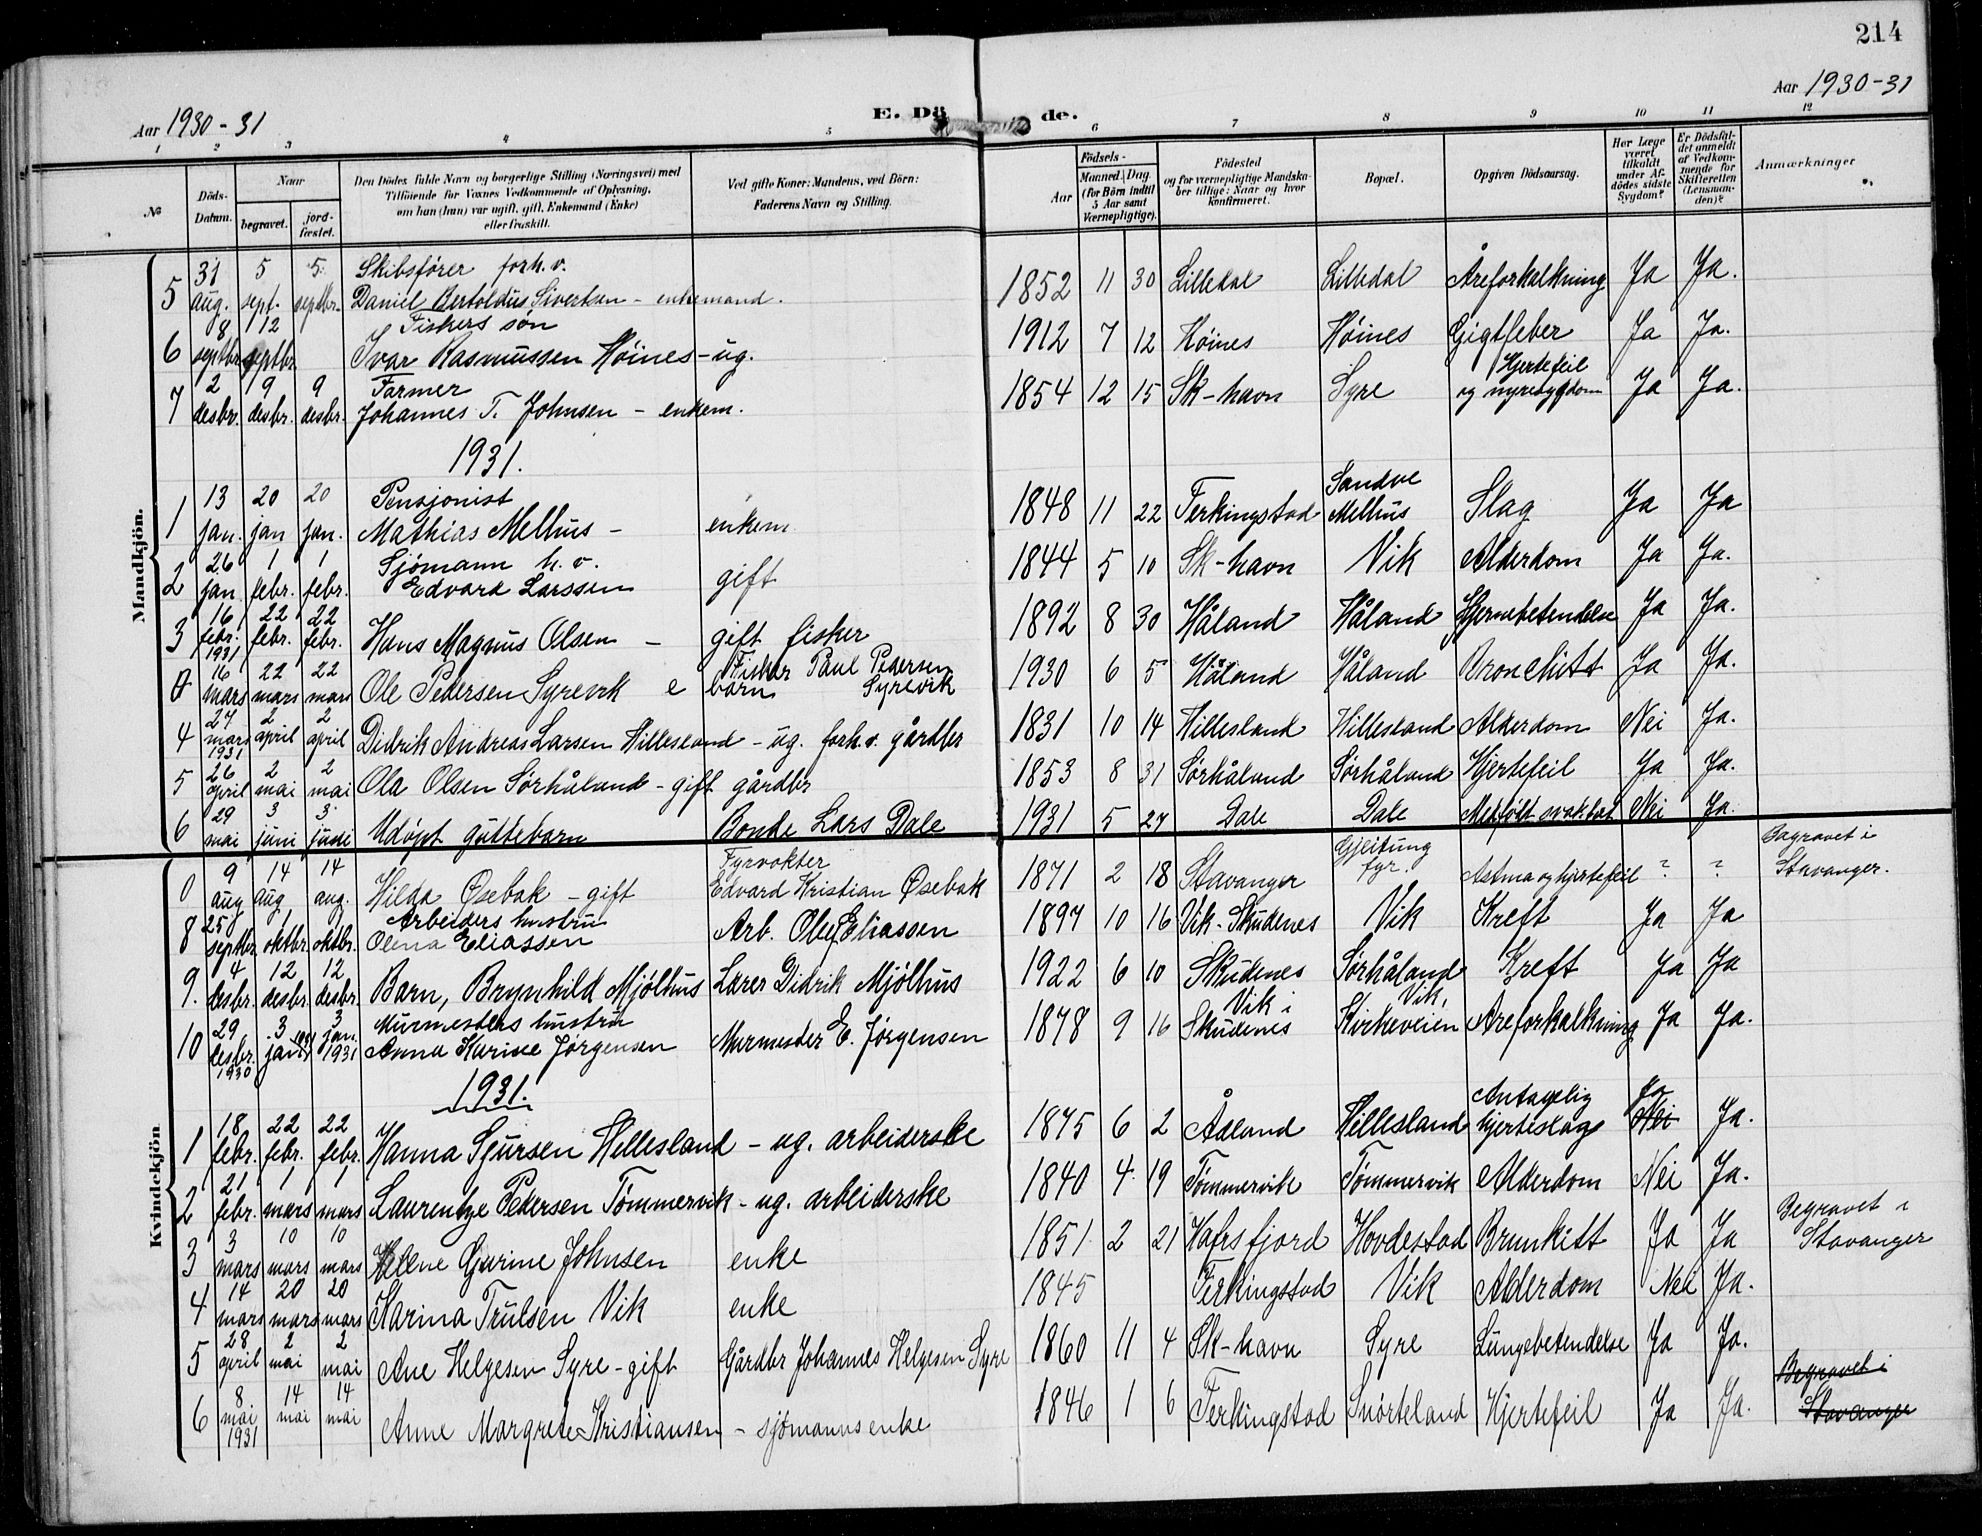 214
Aar 1930-31
E. Döde.
Aar 1930-31
1 2 3 4 5 6 7 8 9 10 11 12
№
Döds-Datum.
Naar
begravet.
jord-fæstet.
Den Dödes fulde Navn og borgerlige Stilling (Næringsvei) med
Tilföiende for Voxnes Vedkommende af Oplysning,
om han (hun) var ugift, gift, Enkemand (Enke)
eller fraskilt.
Ved gifte Koner: Mandens, ved Börn:
Faderens Navn og Stilling.
Födsels-
Aar
Maaned. Dag.
(for Börn indtil
5 Aar samt
Værnepligtige).
Födested
og for værnepligtige Mandska-
ber tillige: Naar og hvor
Konfirmeret.
Bopæl.
Opgiven Dödsaarsag.
Har Læge
været
tilkaldt
under Af-
dödes sidste
Sygdom?
Er Dödsfal-
det anmeldt
af Vedkom-
mende for
Skifteretten
(Lensman-
den)?
Anmærkninger
Mandkjön.
5 31 aug. 5 sept. 5 septbr. Skibsfører forh.v. Daniel Bertoldus Sivertsen - enkemand. 1852 11 30 Lilledal Lilledal Åreforkalkning Ja Ja.
6 8 septbr 12 septbr. Fiskers søn Ivar Rasmussen Høines - ug. 1912 7 12 Høines Høines Gigtfeber Ja Ja.
7 2 desbr. 9 desbr. 9 desbr. Farmer Johannes T. Johnsen - enkem. 1854 12 15 Sk-havn Syre Hjertefeil og nyresygdom Ja Ja.
1931.
1 13 jan. 20 jan 20 jan. Pensjonist Mathias Melhus - enkem. 1848 11 22 Ferkingstad Sandve Melhus Slag Ja Ja
2 26 jan. 1 febr. 1 febr. Sjømann h.v. Edvard Larssen gift 1844 5 10 Sk-havn Vik Alderdom Ja Ja.
3 16 febr. 1931 22 febr. 22 febr. Hans Magnus Olsen - gift fisker 1892 8 30 Håland Håland Hjernebetendelse Ja Ja.
0 16 mars 22 mars 22 mars Ole Pedersen Syrevik e barn Fisker Paul Pedersen Syrevik 1930 6 5 Håland Håland Bronchitt Ja Ja.
4 27 mars 1931 2 april 2 april Didrik Andreas Larsen Hillesland - ug. forh.v. gårdbr 1831 10 14 Hillesland Hillesland Alderdom Nei Ja.
5 26 april 2 mai 2 mai Ola Olsen Sørhåland - gift gårdbr 1853 8 31 Sørhåland Sørhåland Hjertefeil Ja Ja.
6 29 mai 3 juni 3 juni Udøpt guttebarn Bonde Lars Dale 1931 5 27 Dale Dale Medfødt svakhet Nei Ja.
Kvindekjön
0 9 aug 14 aug 14 aug. Hilda Øsebak - gift Fyrvokter Edvard Kristian Øsebak 1871 2 18 Stavanger Gjeitung fyr. Astma og hjertefeil ? ? Begravet i Stavanger.
8 25 septbr. 1 oktbr. 1 oktbr. Arbeiders hustru Olena Eliassen Arb. Olaf Eliassen 1897 10 16 Vik-Skudenes Vik Kreft Ja Ja
9. 4 desbr. 12 desbr. 12 desbr. Barn, Brynhild Mjølhus Lærer Didrik Mjølhus 1922 6 10 Skudenes Sørhåland Kreft Ja Ja
10 29 desbr. 1930 3 jan. 1931 3 jan. 1931 Murmesters hustru Anna Karine Jørgensen Murmester E. Jørgensen 1878 9 16 Vik i Skudenes Vik, Kirkeveien Åreforkalkning Ja Ja.
1931.
1 18 febr. 22 febr. 22 febr. Hanna Sjursen Hillesland - ug. arbeiderske 1875 6 2 Ådland Hillesland Antagelig hjerteslag Ja Nei Ja.
2 21 febr. 1 mars 1 mars Laurentze Pedersen Tømmervik - ug. arbeiderske 1840 4 19 Tømmervik Tømmervik Alderdom Nei Ja.
3 3 mars 10 mars 10 mars Helene Gurine Johnsen enke 1851 2 21 Hafrsfjord Hovdestad Brunkitt Ja Ja Begravet i Stavanger
4 14 mars 20 mars 20 mars Karina Trulsen Vik enke 1845 Ferkingstad Vik Alderdom Nei Ja.
5 28 april 2 mai 2 mai Ane Helgesen Syre - gift Gårdbr Johannes Helgesen Syre 1860 11 4 Sk-havn Syre Lungebetendelse Ja Ja.
6 8 mai 1931 14 mai 14 mai Anne Margrete Kristiansen - sjømanns enke 1846 1 6 Ferkingstad Snørteland Hjertefeil Ja Ja. Begravet i Stavanger